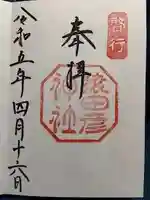 啓行
奉拝
猿田彦
神社
令和五年四月十六日